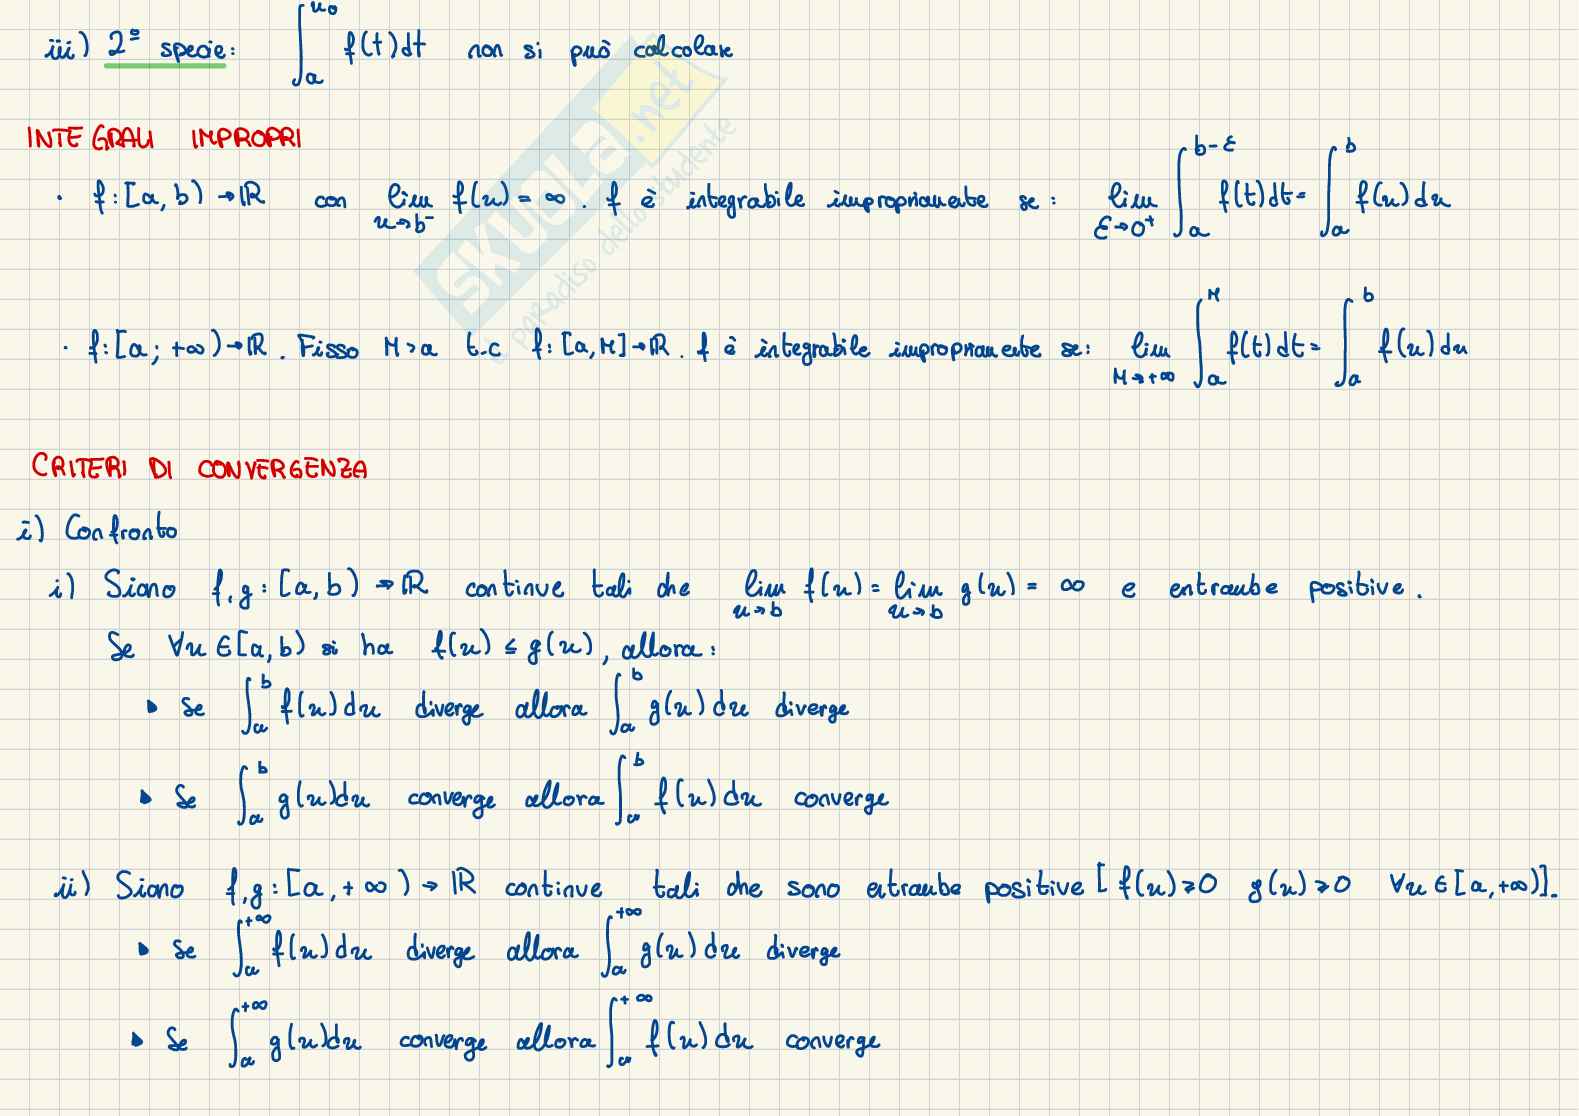 iii) 2ª specie: ∫ₐ^x₀ f(t)dt non si può calcolare
INTEGRALI IMPROPRI
· f:[a,b)→ℝ con lim x→b⁻ f(x)=∞. f è integrabile impropriamente se: lim ε→0⁺ ∫ₐ^b-ε f(t)dt= ∫ₐ^b f(x)dx
· f:[a;+∞)→ℝ. Fisso M>a t.c f:[a,M]→ℝ. f è integrabile impropriamente se: lim M→+∞ ∫ₐ^M f(t)dt= ∫ₐ^b f(x)dx
CRITERI DI CONVERGENZA
i) Confronto
i) Siano f,g:[a,b)→ℝ continue tali che lim x→b f(x)=lim x→b g(x)=∞ e entrambe positive.
Se ∀x∈[a,b) si ha f(x)≤g(x), allora:
▸ Se ∫ₐ^b f(x)dx diverge allora ∫ₐ^b g(x)dx diverge
▸ Se ∫ₐ^b g(x)dx converge allora ∫ₐ^b f(x)dx converge
ii) Siano f,g:[a,+∞)→ℝ continue tali che sono entrambe positive [f(x)≥0 g(x)≥0 ∀x∈[a,+∞)].
▸ Se ∫ₐ^+∞ f(x)dx diverge allora ∫ₐ^+∞ g(x)dx diverge
▸ Se ∫ₐ^+∞ g(x)dx converge allora ∫ₐ^+∞ f(x)dx converge
SKUOLA.net
paradiso dello studente